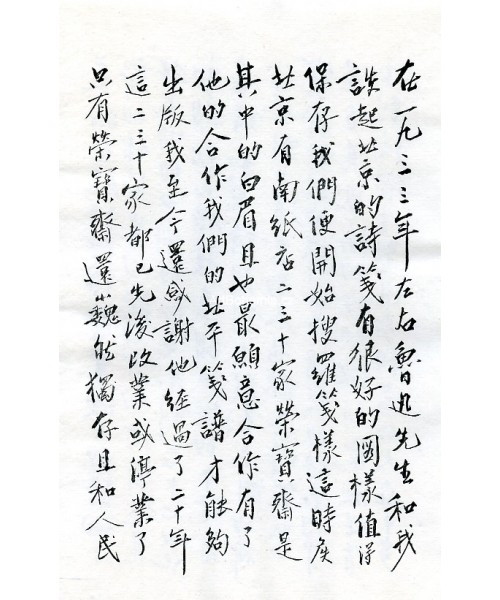 在一九三三年左右魯迅先生和我
談起北京的詩箋有很好的圖樣值得
保存我們便開始搜羅箋樣這時候
北京有南紙店二三十家榮寶齋是
其中的白眉且也最願意合作有了
他的合作我們的北平箋譜才能夠
出版我至今還感謝他經過了二十年
這二三十家都已先後改業或停業了
只有榮寶齋還巍然獨存且和人民